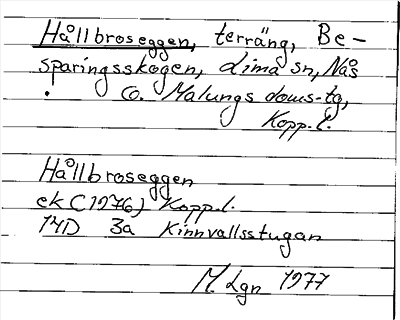 Hållbroseggen, terräng, Be-
sparingsskogen, Lima sn, Nås
o. Malungs doms-tg,
Kopp.l.
Hållbroseggen
ek (1976) Kopp.l.
14D 3a Kinnvallsstugan
M Lgn 1977